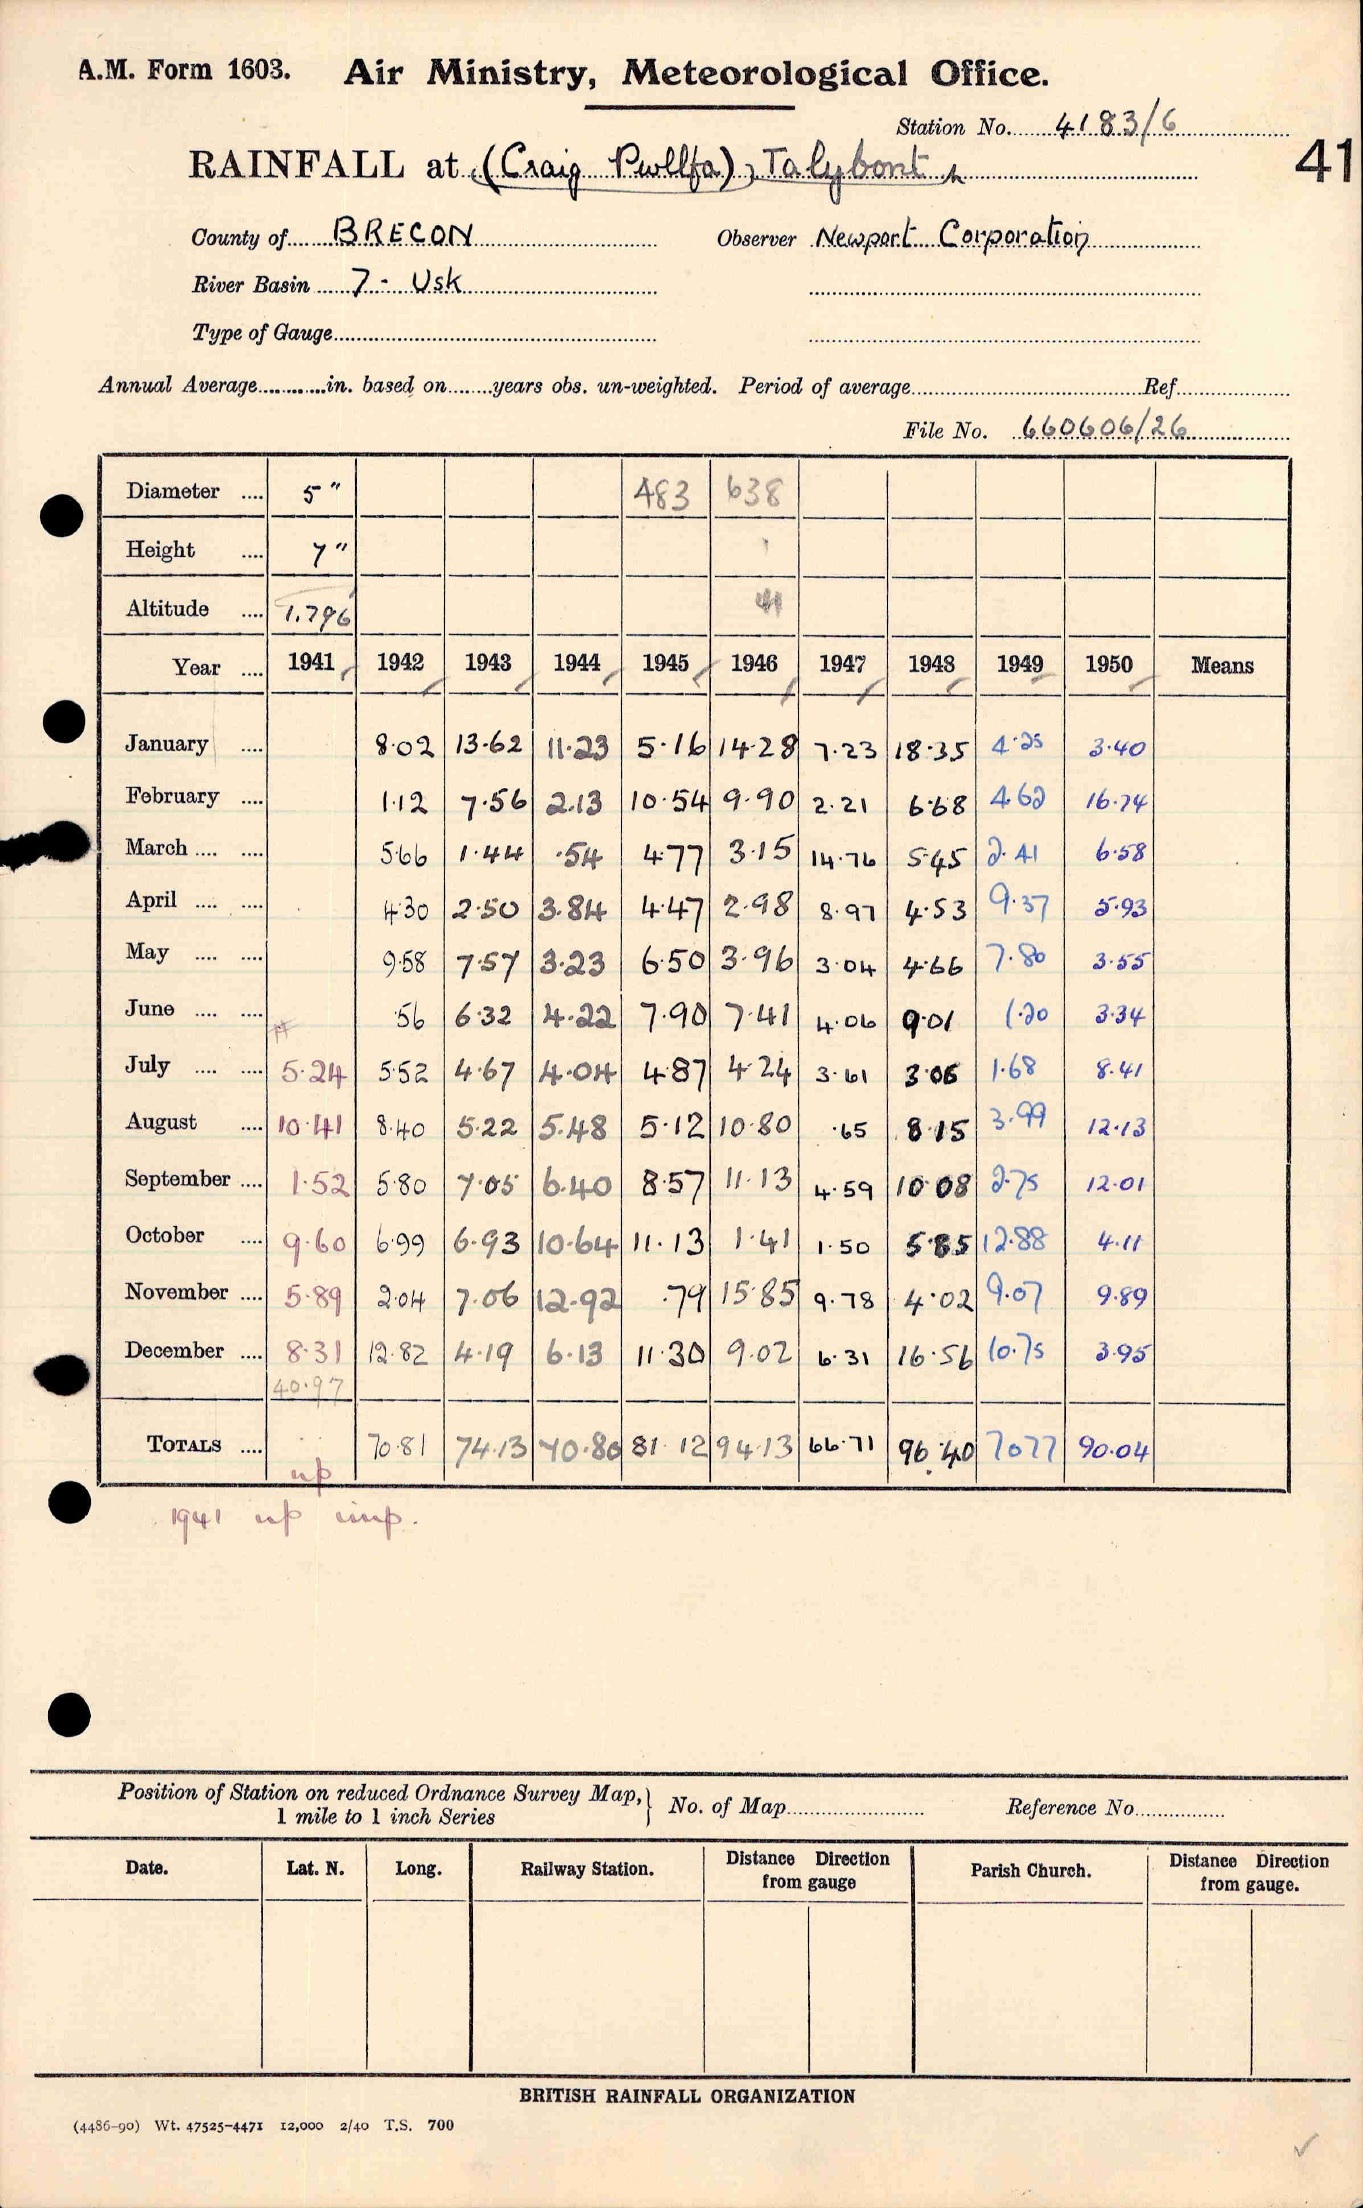 A.M. Form 1603. Air Ministry, Meteorological Office.
Station No. 4183/6
41
RAINFALL at (Craig Pwllfa), Talybont
County of BRECON Observer Newport Corporation
River Basin 7 - Usk
Type of Gauge
Annual Average in. based on years obs. un-weighted. Period of average Ref
File No. 660606/26
Diameter 5" 483 638
Height 7"
Altitude 1.796 41
Year 1941 1942 1943 1944 1945 1946 1947 1948 1949 1950 Means
January 8.02 13.62 11.23 5.16 14.28 7.23 18.35 4.25 3.40
February 1.12 7.56 2.13 10.54 9.90 2.21 6.68 4.62 16.74
March 5.66 1.44 .54 4.77 3.15 14.76 5.45 2.41 6.58
April 4.30 2.50 3.84 4.47 2.98 8.97 4.53 9.37 5.93
May 9.58 7.57 3.23 6.50 3.96 3.04 4.66 7.80 3.55
June .56 6.32 4.22 7.90 7.41 4.06 9.01 1.20 3.34
July 5.24 5.52 4.67 4.04 4.87 4.24 3.61 3.06 1.68 8.41
August 10.41 8.40 5.22 5.48 5.12 10.80 .65 8.15 3.99 12.13
September 1.52 5.80 7.05 6.40 8.57 11.13 4.59 10.08 2.75 12.01
October 9.60 6.99 6.93 10.64 11.13 1.41 1.50 5.85 12.88 4.11
November 5.89 2.04 7.06 12.92 .79 15.85 9.78 4.02 9.07 9.89
December 8.31 12.82 4.19 6.13 11.30 9.02 6.31 16.56 10.75 3.95
40.97
TOTALS 70.81 74.13 70.80 81.12 94.13 66.71 96.40 70.77 90.04
up
1941 up imp.
Position of Station on reduced Ordnance Survey Map, No. of Map Reference No
1 mile to 1 inch Series
Date. Lat. N. Long. Railway Station. Distance Direction from gauge Parish Church. Distance Direction from gauge.
BRITISH RAINFALL ORGANIZATION
(4486-90) Wt. 47525-4471 12,000 2/40 T.S. 700